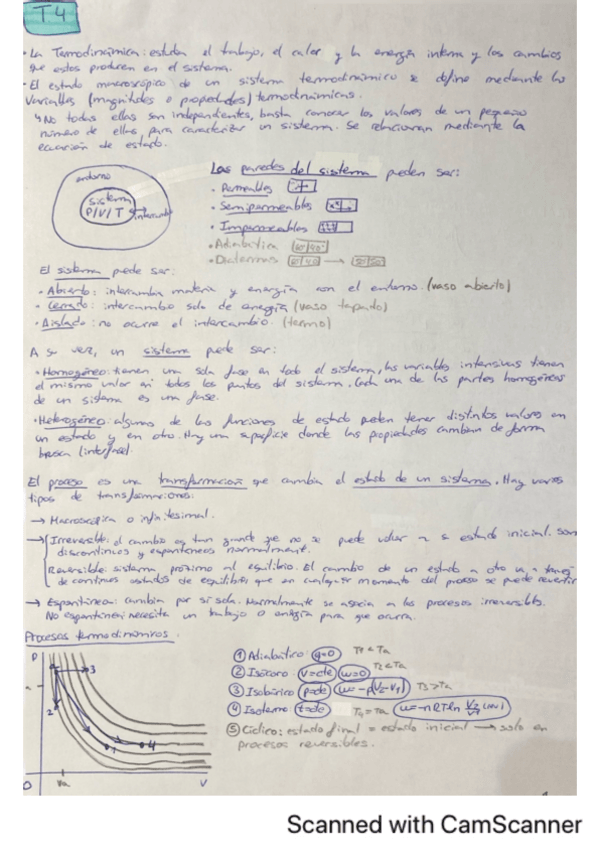 T4
· La Termodinámica: estudia el trabajo, el calor y la energía interna y los cambios
que estos producen en el sistema.
· El estado macroscópico de un sistema termodinámico se define mediante las
variables (magnitudes o propiedades) termodinámicas.
↳ No todas ellas son independientes, basta conocer los valores de un pequeño
número de ellas para caracterizar un sistema. Se relacionan mediante la
ecuación de estado.
entorno
sistema
P/V/T
intercambio
Las paredes del sistema pueden ser:
· Permeables
· Semipermeables
· Impermeables
· Adiabática
· Diatermas
El sistema puede ser:
· Abierto: intercambia materia y energía con el entorno. (vaso abierto)
· Cerrado: intercambio solo de energía (vaso tapado)
· Aislado: no ocurre el intercambio. (termo)
A su vez, un sistema puede ser:
· Homogéneo: tienen una sola fase en todo el sistema, las variables intensivas tienen
el mismo valor en todos los puntos del sistema. Cada una de las partes homogéneas
de un sistema es una fase.
· Heterogéneo: algunas de las funciones de estado pueden tener distintos valores en
un estado y en otro. Hay una superficie donde las propiedades cambian de forma
brusca (interfase).
El proceso es una transformación que cambia el estado de un sistema. Hay varios
tipos de transformaciones:
→ Macroscópica o infinitesimal.
→ Irreversible: el cambio es tan grande que no se puede volver a su estado inicial. Son
discontinuos y espontáneos normalmente.
Reversible: sistema próximo al equilibrio. El cambio de un estado a otro es a través
de continuos estados de equilibrio que en cualquier momento del proceso se puede revertir
→ Espontánea: cambia por sí sola. Normalmente se asocia a los procesos irreversibles.
No espontánea: necesita un trabajo o energía para que ocurra.
Procesos termodinámicos.
P
3
2
1
4
0
Va
V
① Adiabático: q=0 T1 < Ta
② Isócoro: V=cte w=0 T2 < Ta
③ Isobárico p=cte w=-p(V2-V1) T3 > Ta
④ Isotermo t=cte T4=Ta w=-nRT ln V2/V1
⑤ Cíclico: estado final = estado inicial → solo en
procesos reversibles.
Scanned with CamScanner